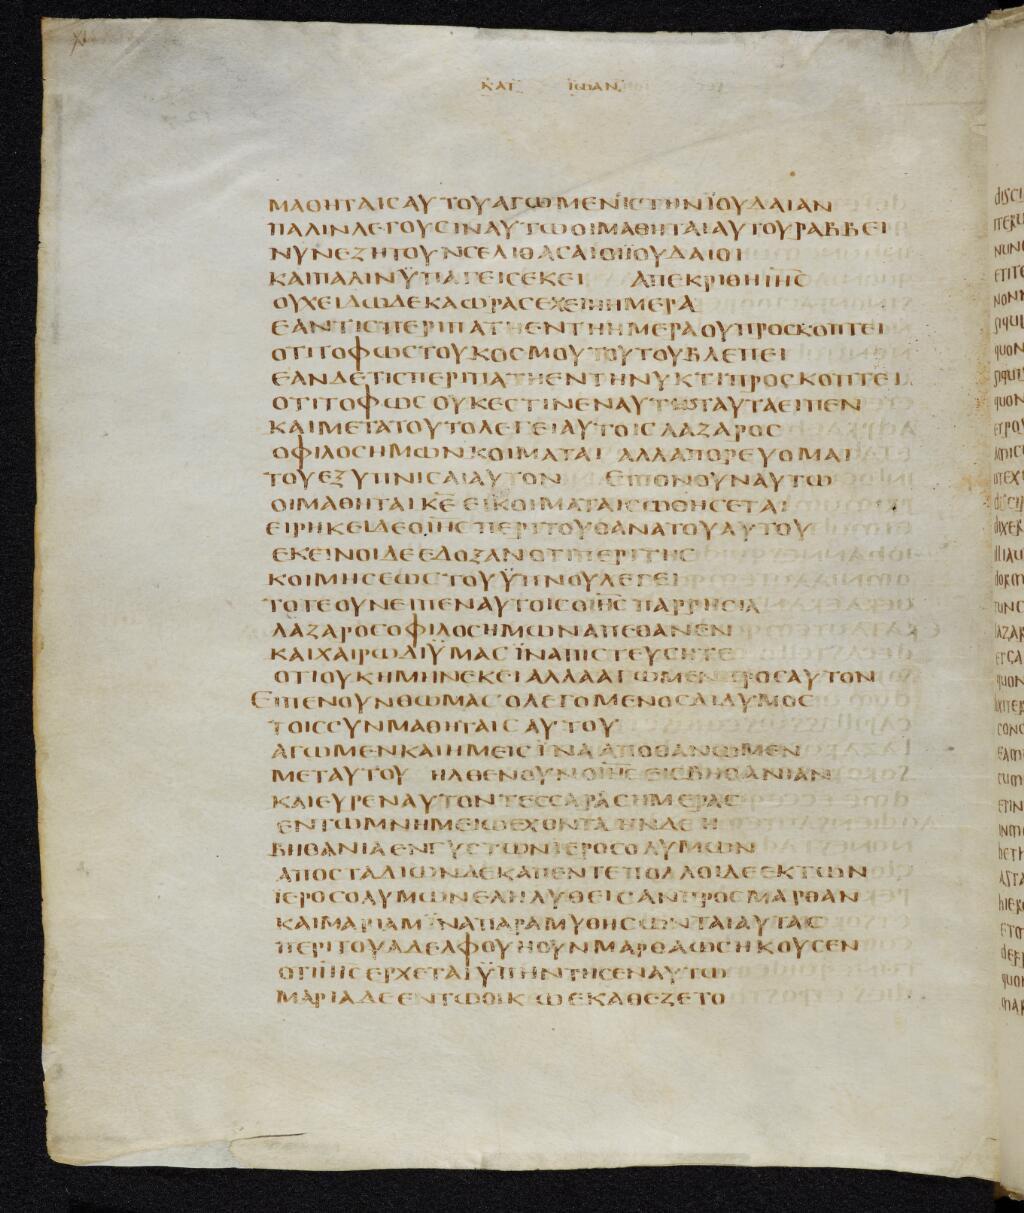 ΚΑΤ ΙΩΑΝ
ΜΑΘΗΤΑΙΣΑΥΤΟΥΑΓΩΜΕΝΙΣΤΗΝΪΟΥΔΑΙΑΝ
ΠΑΛΙΝΛΕΓΟΥΣΙΝΑΥΤΩΟΙΜΑΘΗΤΑΙΑΥΤΟΥΡΑΒΒΕΙ
ΝΥΝΕΖΗΤΟΥΝΣΕΛΙΘΑΣΑΙΟΙΪΟΥΔΑΙΟΙ
ΚΑΙΠΑΛΙΝΫΠΑΓΕΙΣΕΚΕΙ ΑΠΕΚΡΙΘΗΙΗΣ
ΟΥΧΕΙΔΩΔΕΚΑΩΡΑΣΕΧΕΙΗΗΜΕΡΑ
ΕΑΝΤΙΣΠΕΡΙΠΑΤΗΕΝΤΗΗΜΕΡΑΟΥΠΡΟΣΚΟΠΤΕΙ
ΟΤΙΤΟΦΩΣΤΟΥΚΟΣΜΟΥΤΟΥΤΟΥΒΛΕΠΕΙ
ΕΑΝΔΕΤΙΣΠΕΡΙΠΑΤΗΕΝΤΗΝΥΚΤΙΠΡΟΣΚΟΠΤΕΙ
ΟΤΙΤΟΦΩΣΟΥΚΕΣΤΙΝΕΝΑΥΤΗΤΑΥΤΑΕΙΠΕΝ
ΚΑΙΜΕΤΑΤΟΥΤΟΛΕΓΕΙΑΥΤΟΙΣΛΑΖΑΡΟΣ
ΟΦΙΛΟΣΗΜΩΝΚΟΙΜΑΤΑΙ ΑΛΛΑΠΟΡΕΥΟΜΑΙ
ΤΟΥΕΞΥΠΝΙΣΑΙΑΥΤΟΝ ΕΙΠΟΝΟΥΝΑΥΤΩ
ΟΙΜΑΘΗΤΑΙΚΕΕΙΚΟΙΜΑΤΑΙΣΩΘΗΣΕΤΑΙ
ΕΙΡΗΚΕΙΔΕΟΙΗΣΠΕΡΙΤΟΥΘΑΝΑΤΟΥΑΥΤΟΥ
ΕΚΕΙΝΟΙΔΕΕΔΟΞΑΝΟΤΙΠΕΡΙΤΗΣ
ΚΟΙΜΗΣΕΩΣΤΟΥΫΠΝΟΥΛΕΓΕΙ
ΤΟΤΕΟΥΝΕΙΠΕΝΑΥΤΟΙΣΟΙΗΣΠΑΡΡΗΣΙΑ
ΛΑΖΑΡΟΣΟΦΙΛΟΣΗΜΩΝΑΠΕΘΑΝΕΝ
ΚΑΙΧΑΙΡΩΔΙΫΜΑΣΪΝΑΠΙΣΤΕΥΣΗΤΕ
ΟΤΙΟΥΚΗΜΗΝΕΚΕΙΑΛΛΑΑΓΩΜΕΝΠΡΟΣΑΥΤΟΝ
ΕΙΠΕΝΟΥΝΘΩΜΑΣΟΛΕΓΟΜΕΝΟΣΔΙΔΥΜΟΣ
ΤΟΙΣΣΥΝΜΑΘΗΤΑΙΣΑΥΤΟΥ
ΑΓΩΜΕΝΚΑΙΗΜΕΙΣΪΝΑΑΠΟΘΑΝΩΜΕΝ
ΜΕΤΑΥΤΟΥ ΗΛΘΕΝΟΥΝΟΙΗΣΕΙΣΒΗΘΑΝΙΑΝ
ΚΑΙΕΥΡΕΝΑΥΤΟΝΤΕΣΣΑΡΑΣΗΜΕΡΑΣ
ΕΝΤΩΜΝΗΜΕΙΩΕΧΟΝΤΑΗΝΔΕΗ
ΒΗΘΑΝΙΑΕΝΓΥΣΤΩΝΙΕΡΟΣΟΛΥΜΩΝ
ΑΠΟΣΤΑΔΙΩΝΔΕΚΑΠΕΝΤΕΠΟΛΛΟΙΔΕΕΚΤΩΝ
ΙΕΡΟΣΟΛΥΜΩΝΕΛΗΛΥΘΕΙΣΑΝΠΡΟΣΜΑΡΘΑΝ
ΚΑΙΜΑΡΙΑΜΪΝΑΠΑΡΑΜΥΘΗΣΩΝΤΑΙΑΥΤΑΣ
ΠΕΡΙΤΟΥΑΔΕΛΦΟΥΗΟΥΝΜΑΡΘΑΩΣΗΚΟΥΣΕΝ
ΟΤΙΙΗΣΕΡΧΕΤΑΙΫΠΗΝΤΗΣΕΝΑΥΤΩ
ΜΑΡΙΑΔΕΕΝΤΩΟΙΚΩΕΚΑΘΕΖΕΤΟ